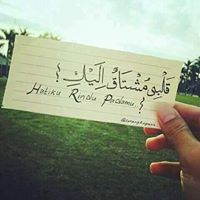 { قَلْبِيْ مُشْتَاقٌ إِلَيْكِ }
Hatiku Rindu Padamu..